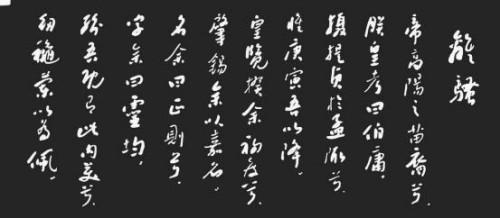 離騷
帝高陽之苗裔兮，
朕皇考曰伯庸。
攝提貞於孟陬兮，
惟庚寅吾以降。
皇覽揆余初度兮，
肇錫余以嘉名。
名余曰正則兮，
字余曰靈均。
紛吾既有此內美兮，
紉穐蘭以為佩。